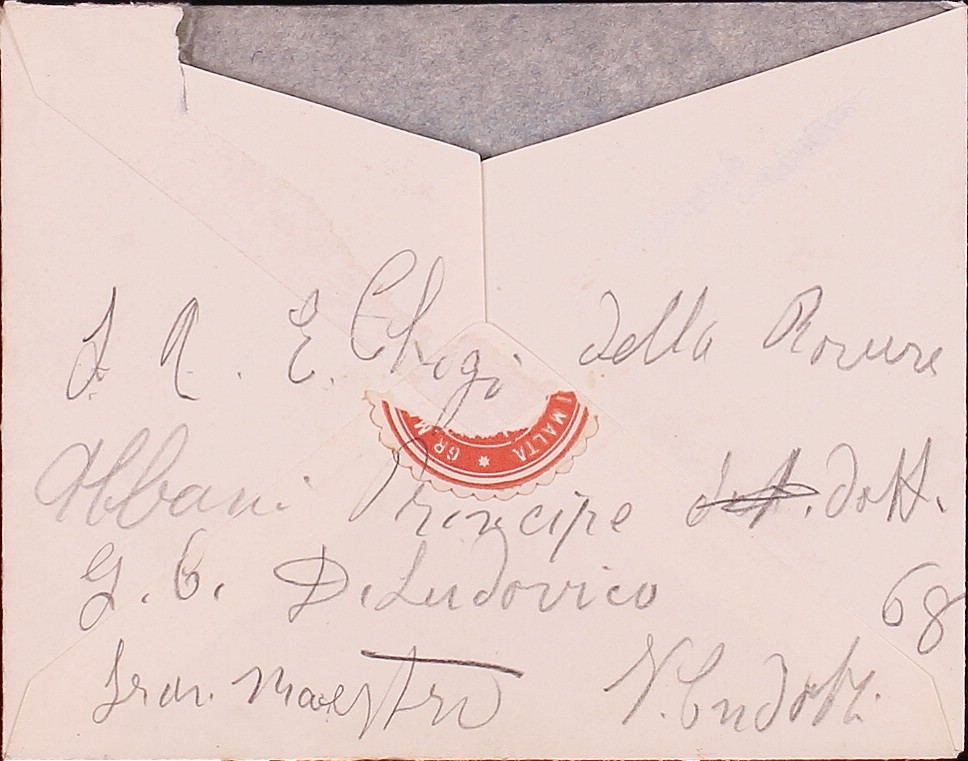 S. A. E. Chigi della Rovere
Albani Principe dott. dott.
G. C. D. Ludovico
68
Gran Maestro
N.
GR M
I MALTA